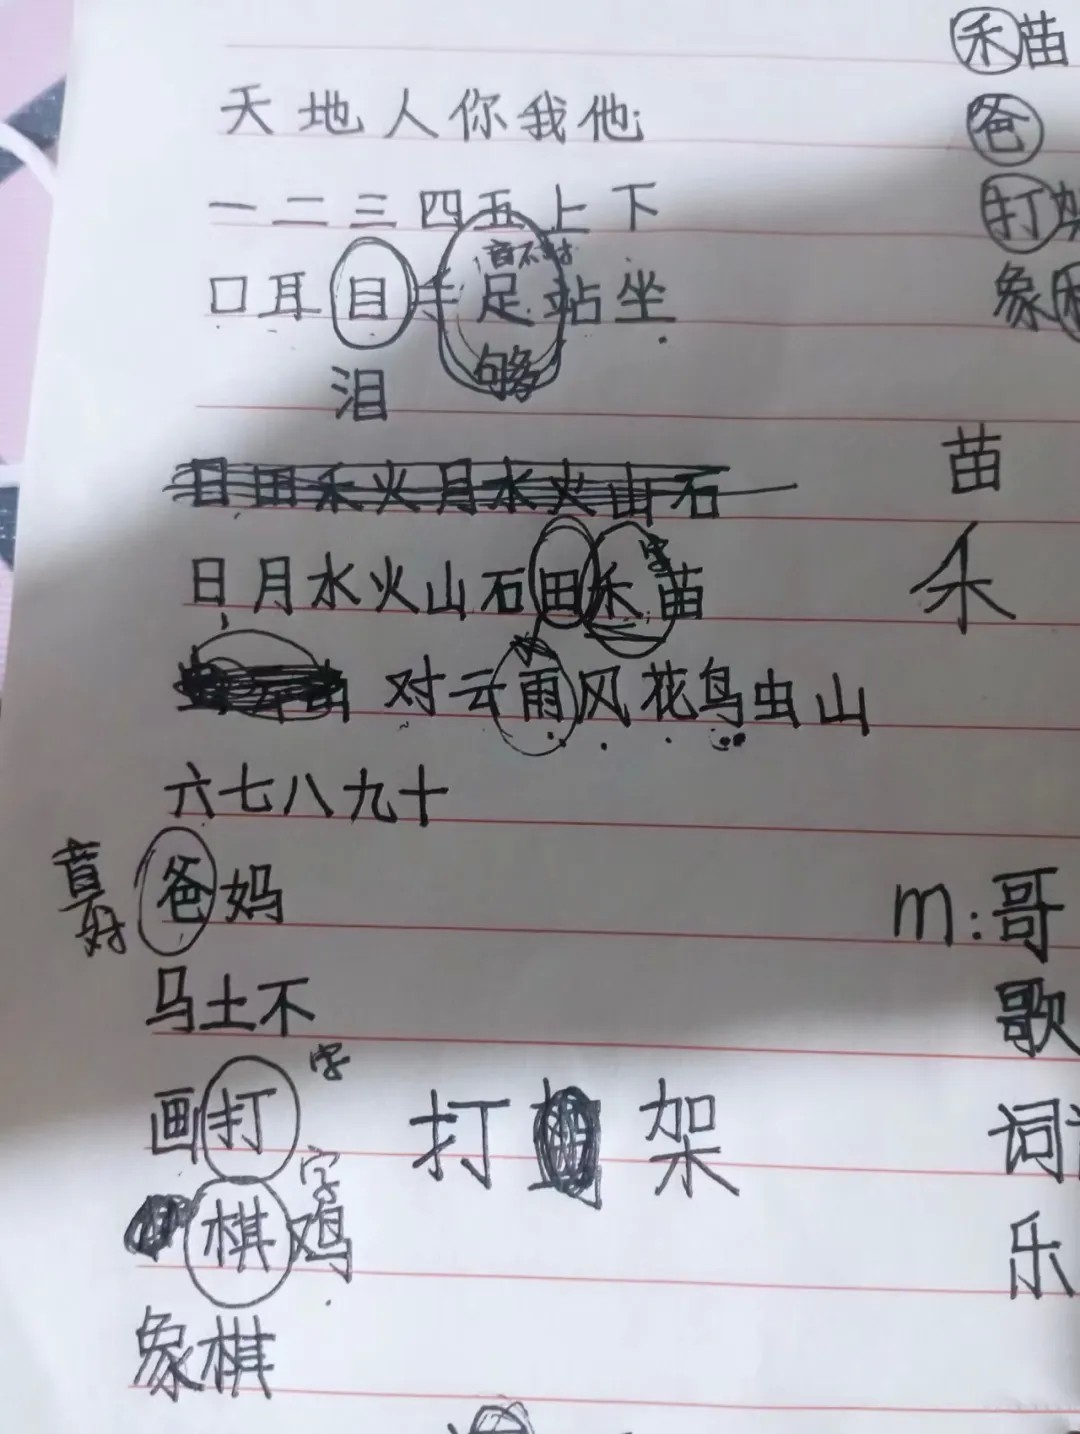 禾苗
天地人你我他
爸
打
一二三四五上下
音不
口耳目手足站坐
象
够
泪
苗
日田禾火月水火山石
字
日月水火山石田禾苗
禾
对云雨风花鸟虫山
六七八九十
爸妈
m:哥
马土不
歌
字
画打 打 架
词
字
棋鸡
乐
象棋